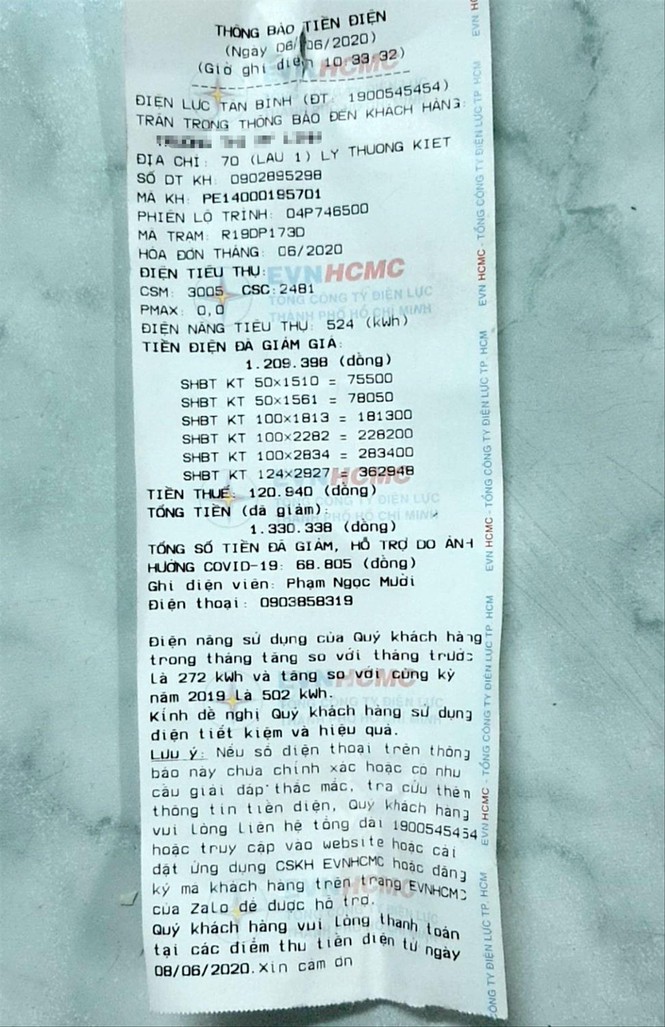 THÔNG BÁO TIỀN ĐIỆN
(Ngày 06/06/2020)
(Giờ ghi điện 10:33:32)
ĐIỆN LỰC TÂN BÌNH (ĐT: 1900545454)
TRÂN TRỌNG THÔNG BÁO ĐẾN KHÁCH HÀNG:
ĐỊA CHỈ: 70 (LAU 1) LY THUONG KIET
SỐ DT KH: 0902895298
MÃ KH: PE14000195701
PHIÊN LỘ TRÌNH: 04P746500
MÃ TRẠM: R19DP173D
HÓA ĐƠN THÁNG: 06/2020
ĐIỆN TIÊU THỤ:
CSM: 3005 CSC:2481
PMAX: 0,0
ĐIỆN NĂNG TIÊU THỤ: 524 (kWh)
TIỀN ĐIỆN ĐÃ GIẢM GIÁ:
1.209.398 (đồng)
SHBT KT 50x1510 = 75500
SHBT KT 50x1561 = 78050
SHBT KT 100x1813 = 181300
SHBT KT 100x2282 = 228200
SHBT KT 100x2834 = 283400
SHBT KT 124x2927 = 362948
TIỀN THUẾ: 120.940 (đồng)
TỔNG TIỀN (đã giảm):
1.330.338 (đồng)
TỔNG SỐ TIỀN ĐÃ GIẢM, HỖ TRỢ DO ẢNH
HƯỞNG COVID-19: 68.805 (đồng)
Ghi điện viên: Phạm Ngọc Mười
Điện thoại: 0903858319
Điện năng sử dụng của Quý khách hàng
trong tháng tăng so với tháng trước
là 272 kWh và tăng so với cùng kỳ
năm 2019 là 502 kWh.
Kính đề nghị Quý khách hàng sử dụng
điện tiết kiệm và hiệu quả.
Lưu ý: Nếu số điện thoại trên thông
báo này chưa chính xác hoặc có nhu
cầu giải đáp thắc mắc, tra cứu thêm
thông tin tiền điện, Quý khách hàng
vui lòng liên hệ tổng đài 1900545454
hoặc truy cập vào website hoặc cài
đặt ứng dụng CSKH EVNHCMC hoặc đăng
ký mã khách hàng trên trang EVNHCMC
của Zalo để được hỗ trợ.
Quý khách hàng vui lòng thanh toán
tại các điểm thu tiền điện từ ngày
08/06/2020.Xin cám ơn
EVNHCMC
TỔNG CÔNG TY ĐIỆN LỰC
THÀNH PHỐ HỒ CHÍ MINH
EVN HCMC - TỔNG CÔNG TY ĐIỆN LỰC TP. HCM